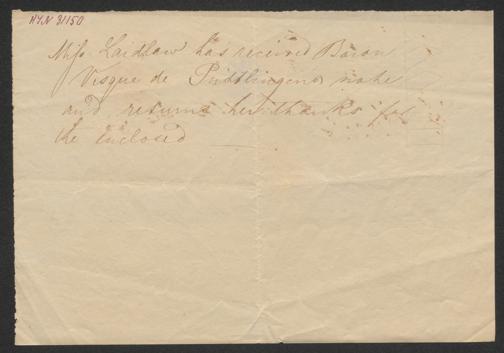 H.I.N 31150
Miss Laidlaw has received Baron
Vesque de Püttlingens note
and returns her thanks for
the enclosed